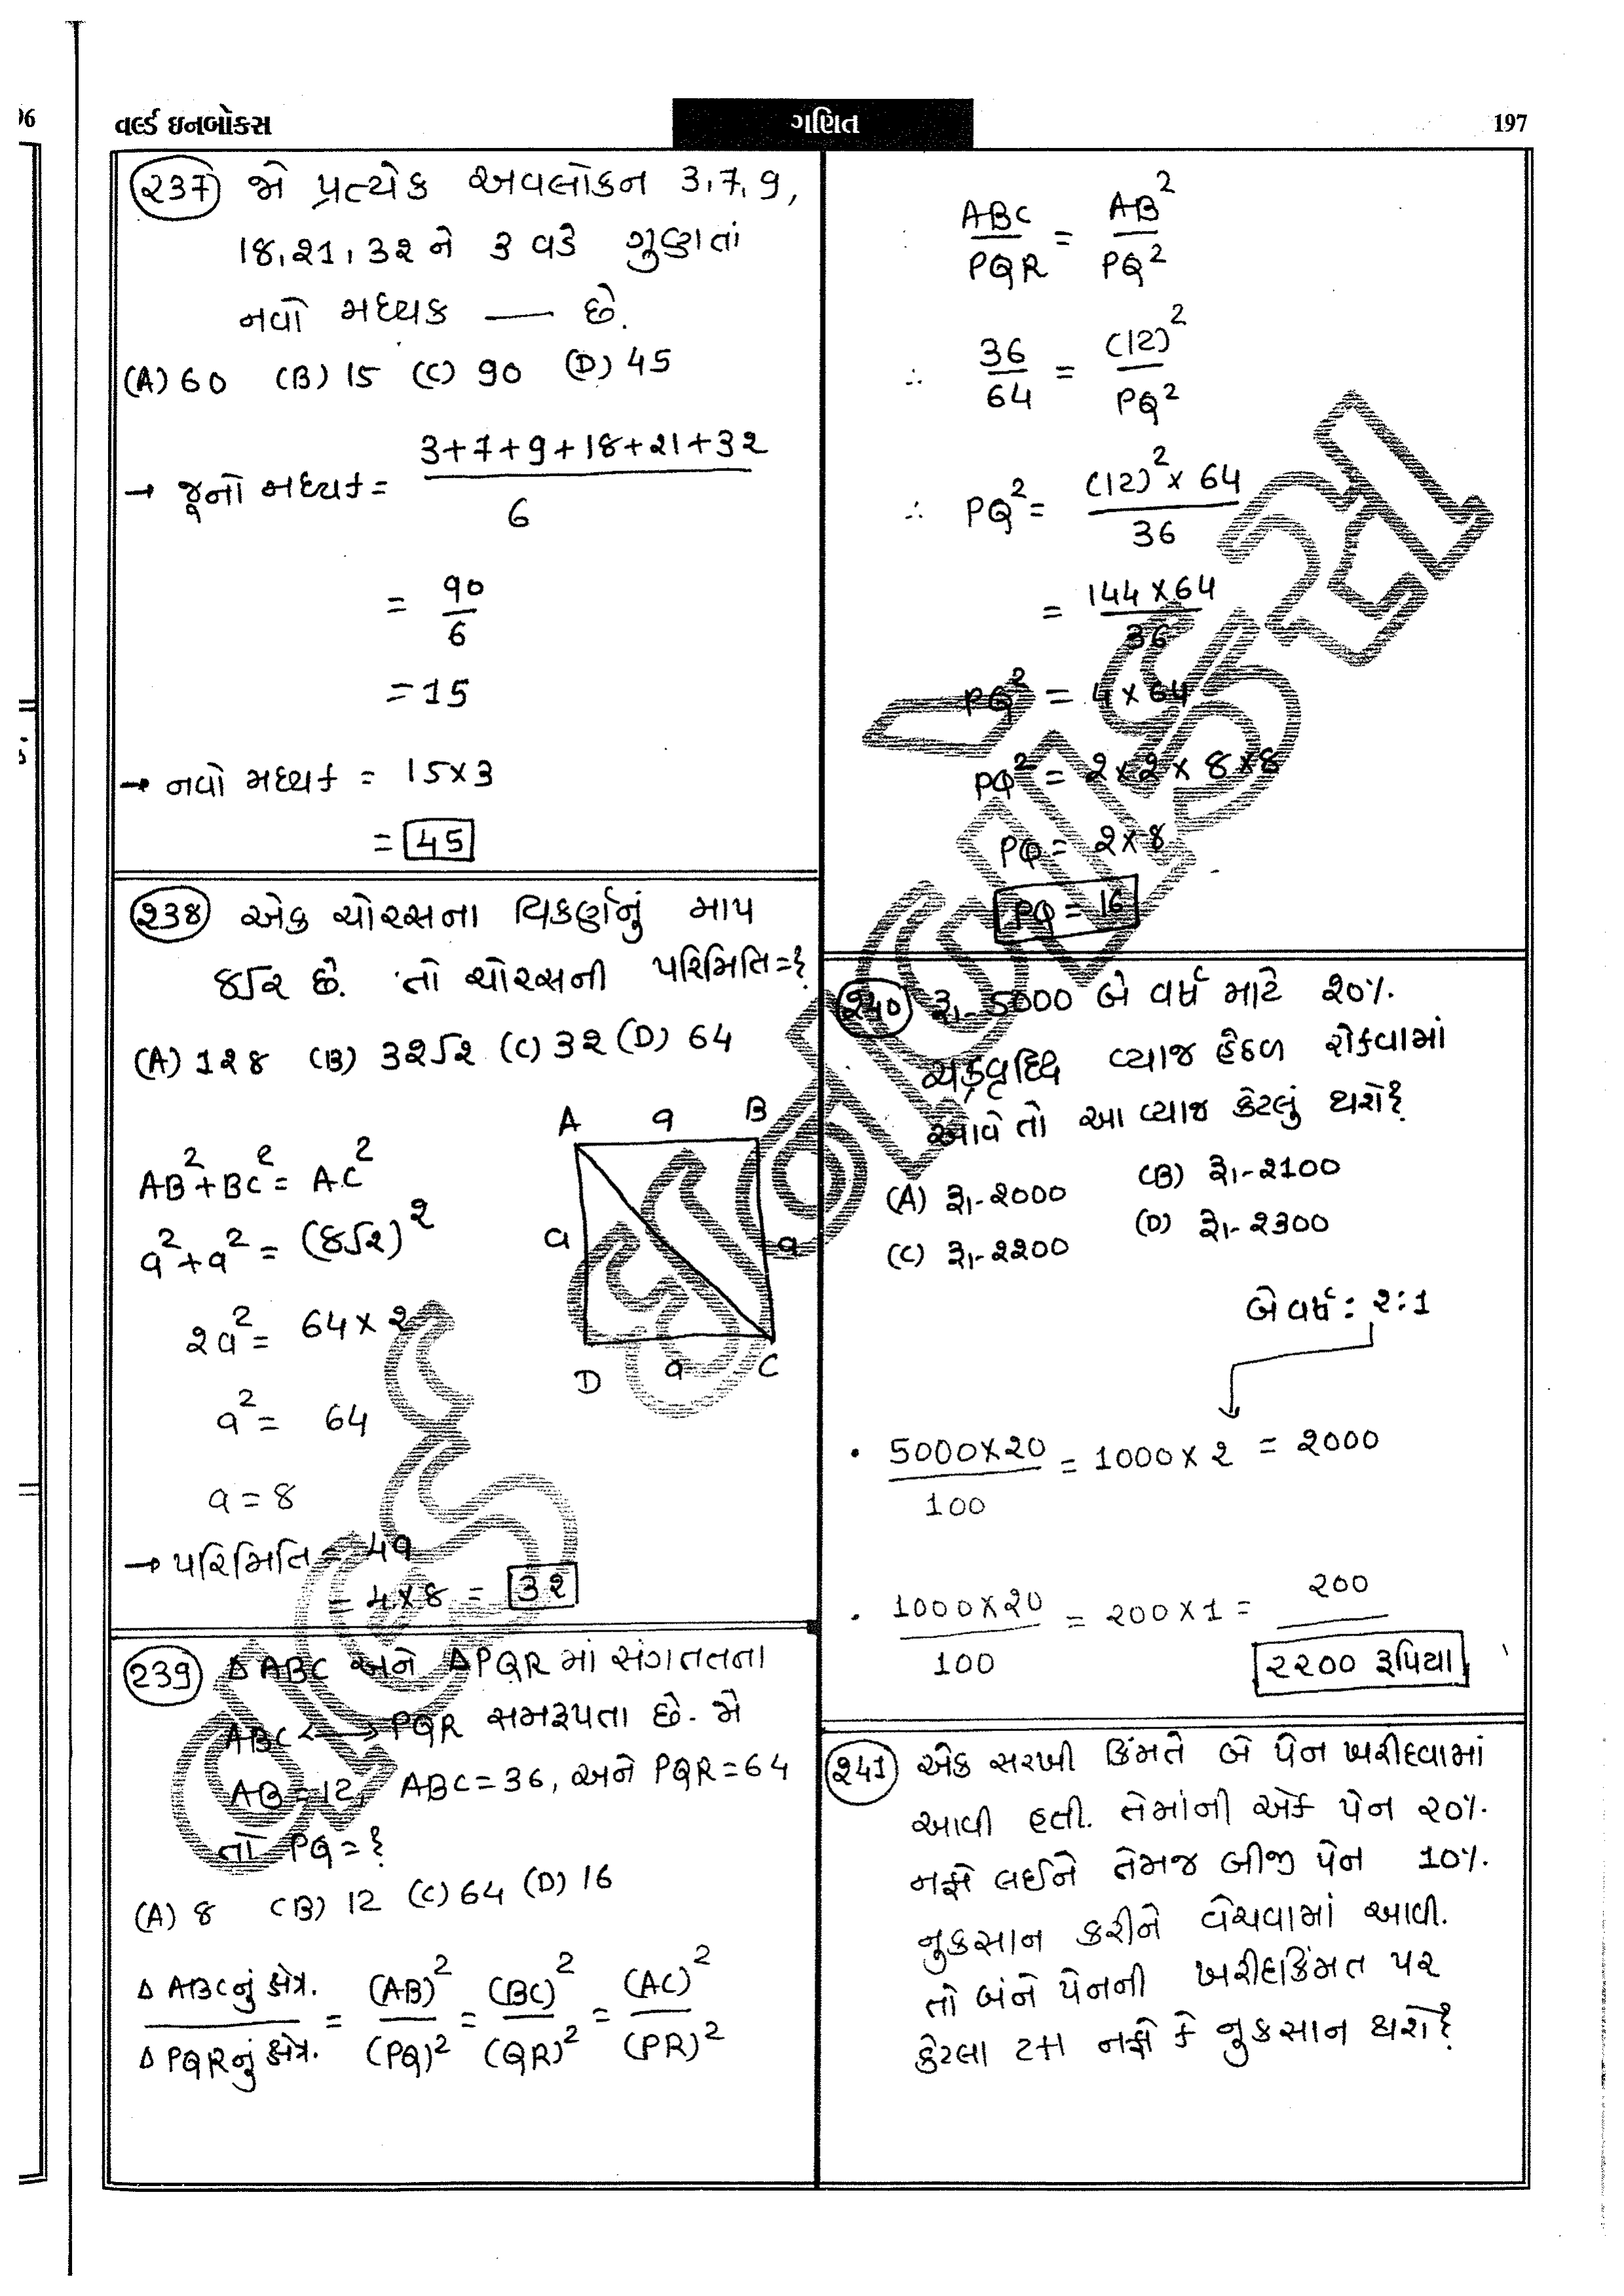 વર્લ્ડ ઇનબોક્સ
ગણિત
197
237 જો પ્રત્યેક અવલોકન 3,7,9,
18,21,32 ને 3 વડે ગુણતાં
નવો મધ્યક — છે.
(A) 60 (B) 15 (C) 90 (D) 45
→ જૂનો મધ્યક = 3+7+9+18+21+32
6
= 90
6
= 15
→ નવો મધ્યક = 15×3
= 45
238 એક ચોરસના વિકર્ણનું માપ
8√2 છે. તો ચોરસની પરિમિતિ = ?
(A) 128 (B) 32√2 (C) 32 (D) 64
A a B
AB² + BC² = AC²
a² + a² = (8√2)²
a a
2a² = 64 × 2
D a C
a² = 64
a = 8
→ પરિમિતિ = 4a
= 4×8 = 32
239 ΔABC અને ΔPQR માં સંગતતના
ABC ↔ PQR સમરૂપતા છે. જો
AB = 12, ABC = 36, અને PQR = 64
તો PQ = ?
(A) 8 (B) 12 (C) 64 (D) 16
Δ ABCનું ક્ષેત્ર. = (AB)² = (BC)² = (AC)²
Δ PQRનું ક્ષેત્ર. (PQ)² (QR)² (PR)²
ABC = AB²
PQR PQ²
∴ 36 = (12)²
64 PQ²
∴ PQ² = (12)² × 64
36
= 144 × 64
36
PQ² = 4 × 64
PQ² = 2×2×8×8
PQ = 2×8
PQ = 16
240 રૂા-5000 બે વર્ષ માટે 20%
ચક્રવૃદ્ધિ વ્યાજ હેઠળ રોકવામાં
આવે તો આ વ્યાજ કેટલું થશે?
(A) રૂા-2000 (B) રૂા-2100
(C) રૂા-2200 (D) રૂા-2300
બે વર્ષ : 2:1
• 5000×20 = 1000×2 = 2000
100
• 1000×20 = 200×1 = 200
100
2200 રૂપિયા
241 એક સરખી કિંમતે બે પેન ખરીદવામાં
આવી હતી. તેમાંની એક પેન 20%
નફો લઈને તેમજ બીજી પેન 10%
નુકસાન કરીને વેચવામાં આવી.
તો બંને પેનની ખરીદકિંમત પર
કેટલા ટકા નફો કે નુકસાન થશે?